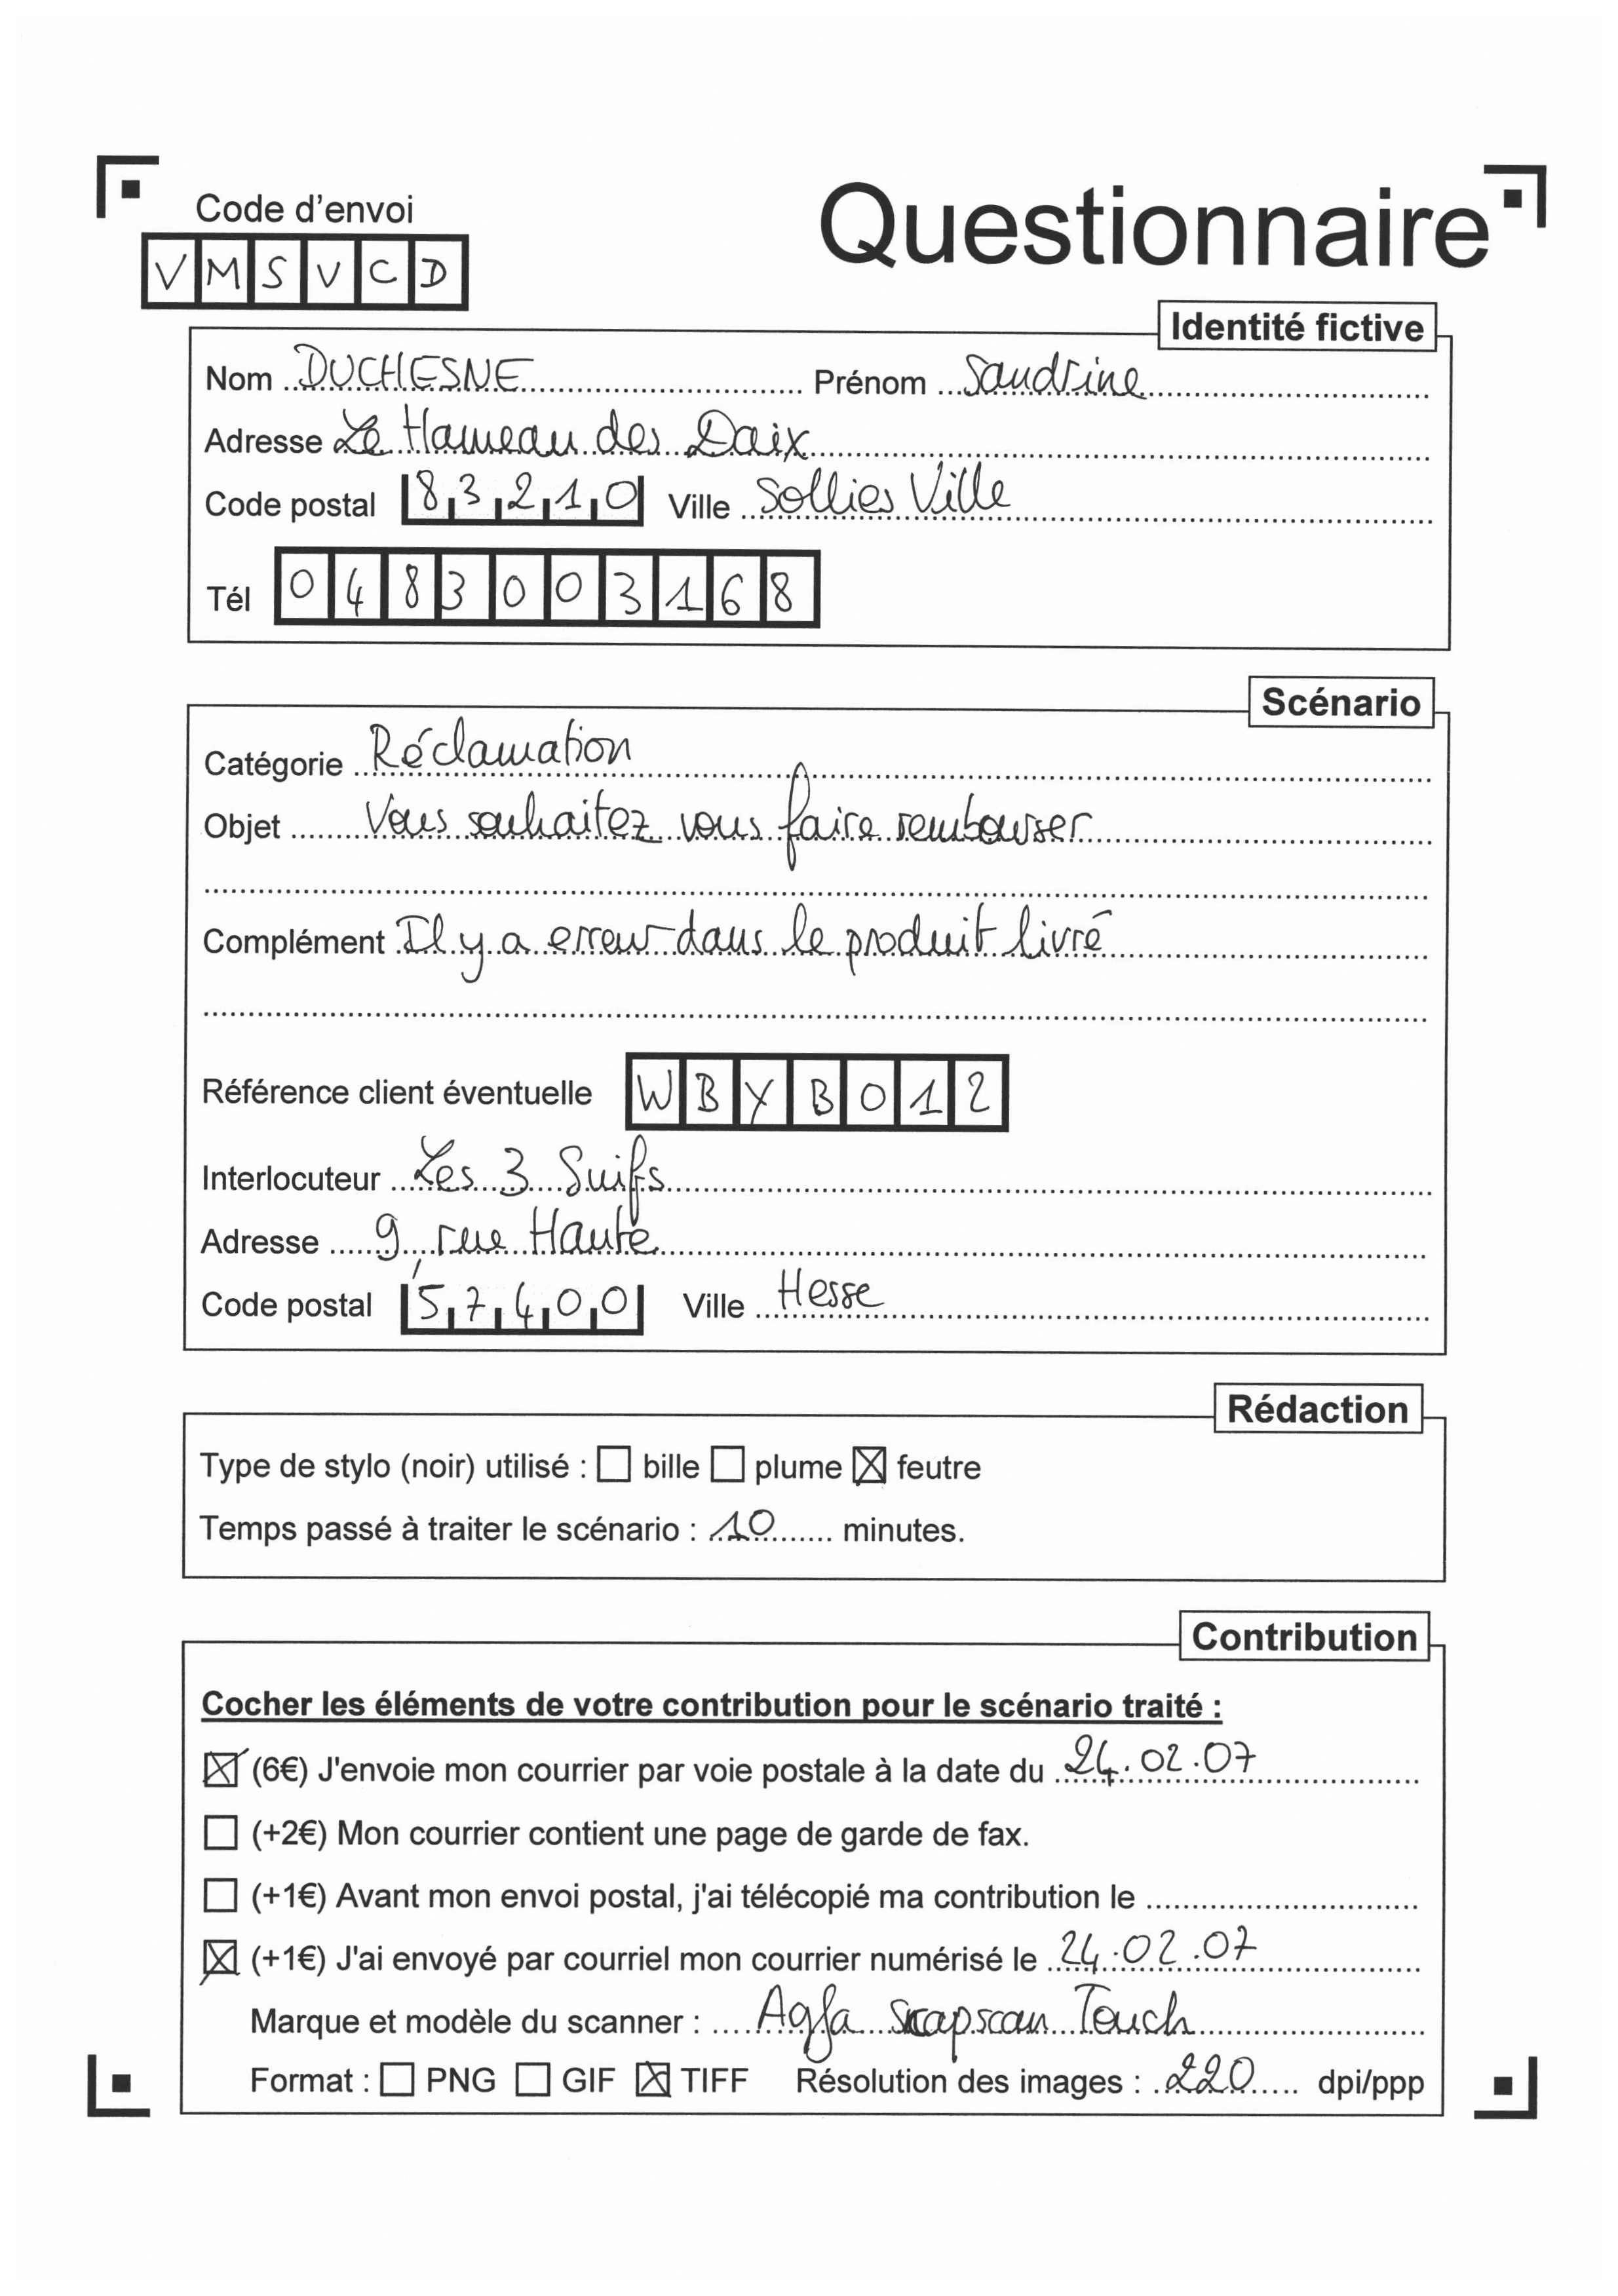 Code d'envoi
Questionnaire
VMSVCD
Identité fictive
Nom DUCHESNE Prénom Sandrine
Adresse Le Hameau des Daix
Code postal 83210 Ville Sollies Ville
Tél 0483003168
Scénario
Catégorie Réclamation
Objet Vous souhaitez vous faire rembourser
Complément Il y a erreur dans le produit livré
Référence client éventuelle WBYB012
Interlocuteur Les 3 Suifs
Adresse 9, rue Haute
Code postal 57400 Ville Hesse
Rédaction
Type de stylo (noir) utilisé : ☐ bille ☐ plume ☒ feutre
Temps passé à traiter le scénario : 10 minutes.
Contribution
Cocher les éléments de votre contribution pour le scénario traité :
☒ (6€) J'envoie mon courrier par voie postale à la date du 24.02.07
☐ (+2€) Mon courrier contient une page de garde de fax.
☐ (+1€) Avant mon envoi postal, j'ai télécopié ma contribution le
☒ (+1€) J'ai envoyé par courriel mon courrier numérisé le 24.02.07
Marque et modèle du scanner : Agfa Snapscan Touch
Format : ☐ PNG ☐ GIF ☒ TIFF Résolution des images : 220 dpi/ppp